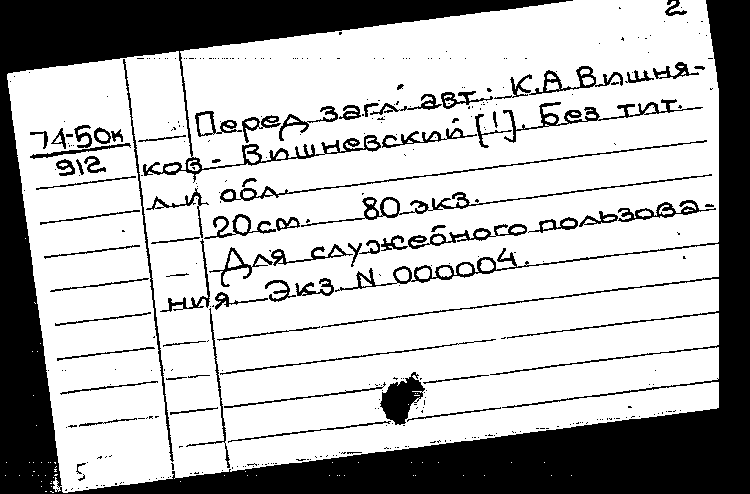 2
74-50к
912
Перед загл. авт.: К.А. Вишня-
ков - Вишневский [!]. Без тит.
л. и обл.
20 см. 80 экз.
Для служебного пользова-
ния. Экз. N 000004.
5